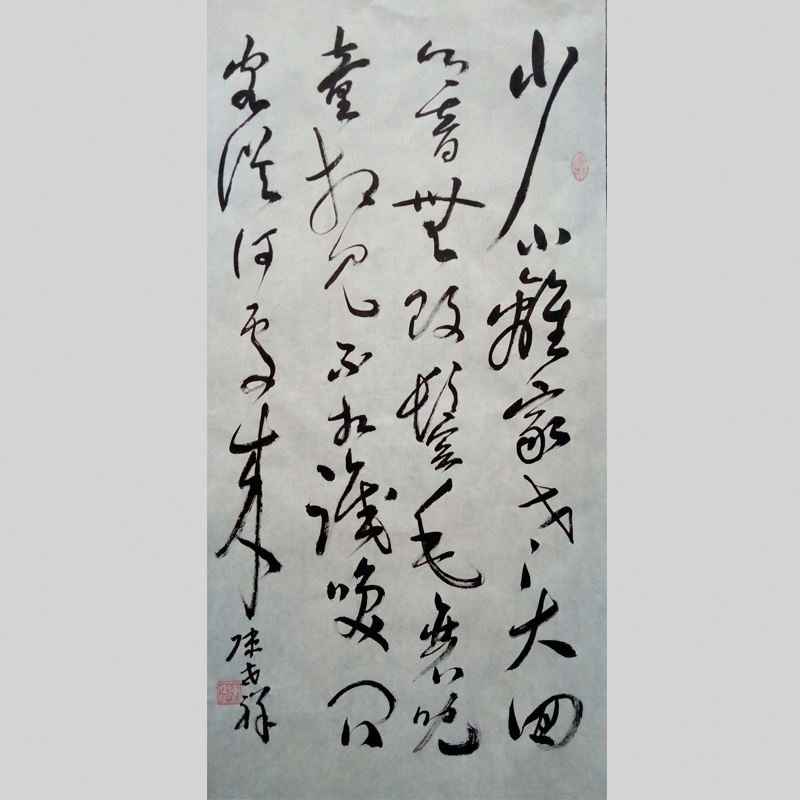 少小離家老大回
鄉音無改鬢毛衰兒
童相見不相識咲問
客從何處來